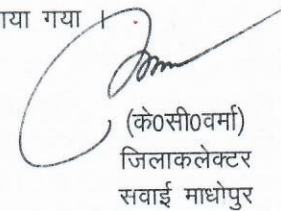 ाया गया ।
(के0सी0वर्मा)
जिलाकलेक्टर
सवाई माधोपुर